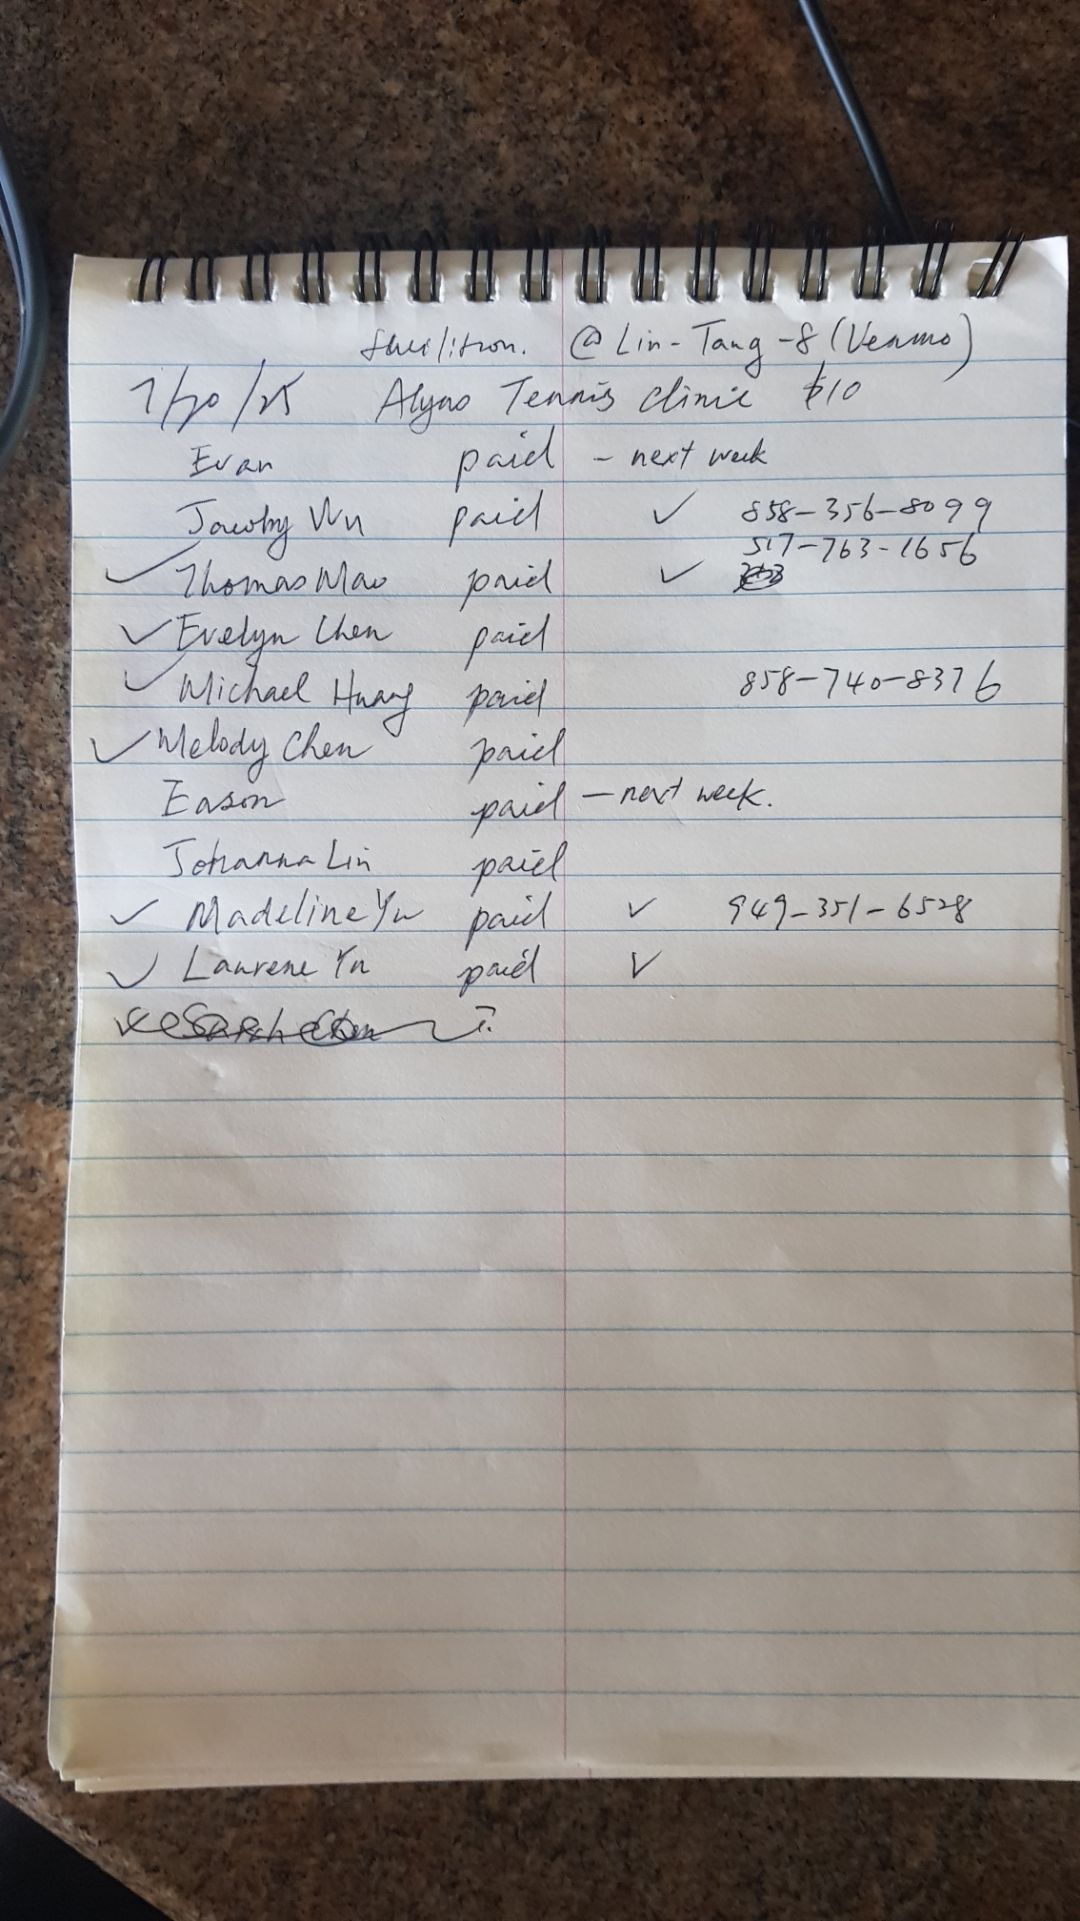 @Lin-Tang-8 (Venmo)
7/20/25 Tennis clinic $10
Evan paid - next week
Jacoby Wu paid ✓ 858-356-8099
517-763-1656
✓ Thomas Mao paid ✓
✓ Evelyn Chen paid
✓ Michael Huang paid 858-740-8376
✓ Melody Chen paid
Eason paid - next week.
Johanna Lin paid
✓ Madeline Yu paid ✓ 949-351-6528
✓ Laurene Yu paid ✓